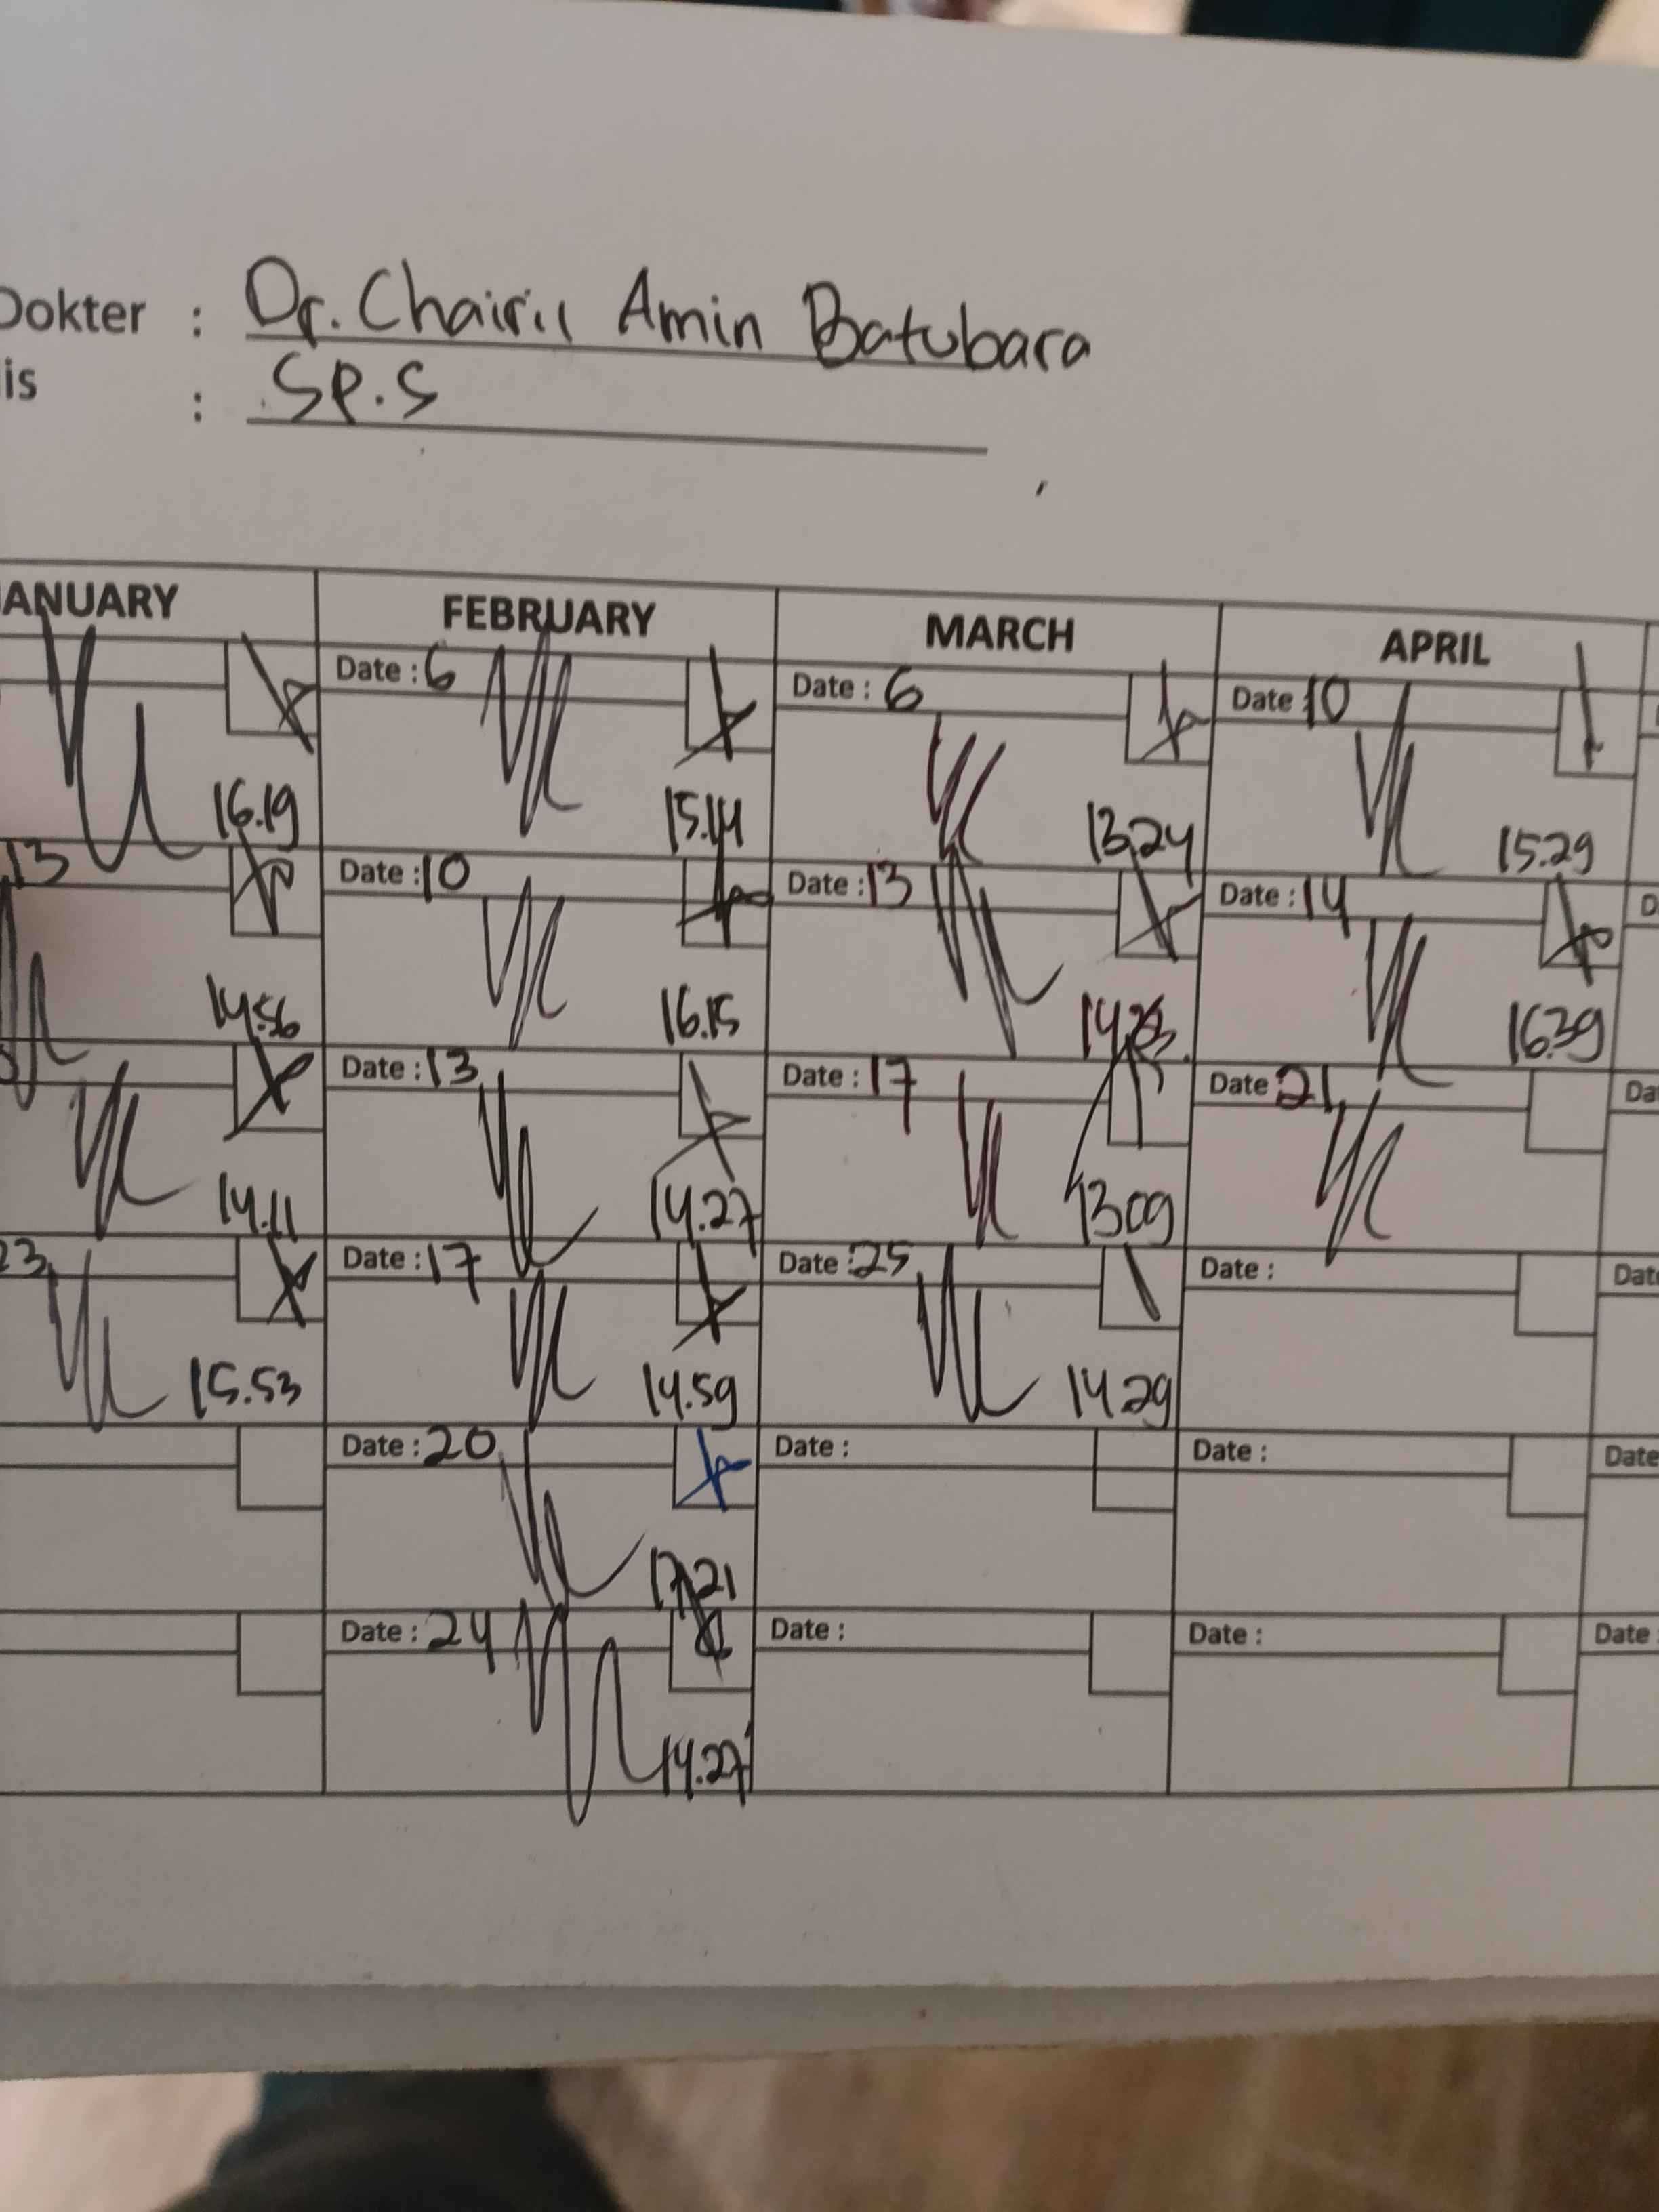 Dokter : Dr. Chairil Amin Batubara
is : Sp.S
ANUARY FEBRUARY MARCH APRIL
Date : 6 Date : 6 Date : 10
16.19 15.14 13.24 15.29
13 Date : 10 Date : 13 Date : 14
14.56 16.15 16.39
Date : 13 Date : 17 Date : 21
14.11 14.27 13.09
23 Date : 17 Date : 25 Date :
15.53 14.59 14.29
Date : 20 Date : Date : Date
17.21
Date : 24 Date : Date : Date
14.27